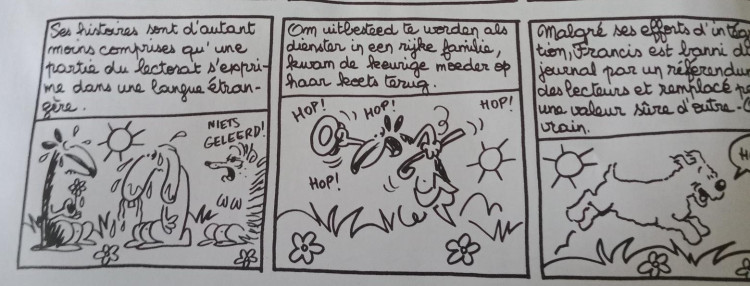 Ses histoires sont d'autant
moins comprises qu'une
partie du lectorat s'expri-
me dans une langue étran-
gère.
NIETS
GELEERD!
Om uitbesteed te worden als
dienster in een rijke familie,
kwam de keurige moeder op
haar koets terug.
HOP!
HOP!
HOP!
HOP!
Malgré ses efforts d'intég
tion, Francis est banni d
journal par un référendu
des lecteurs et remplacé p
une valeur sûre d'outre-
vrain.